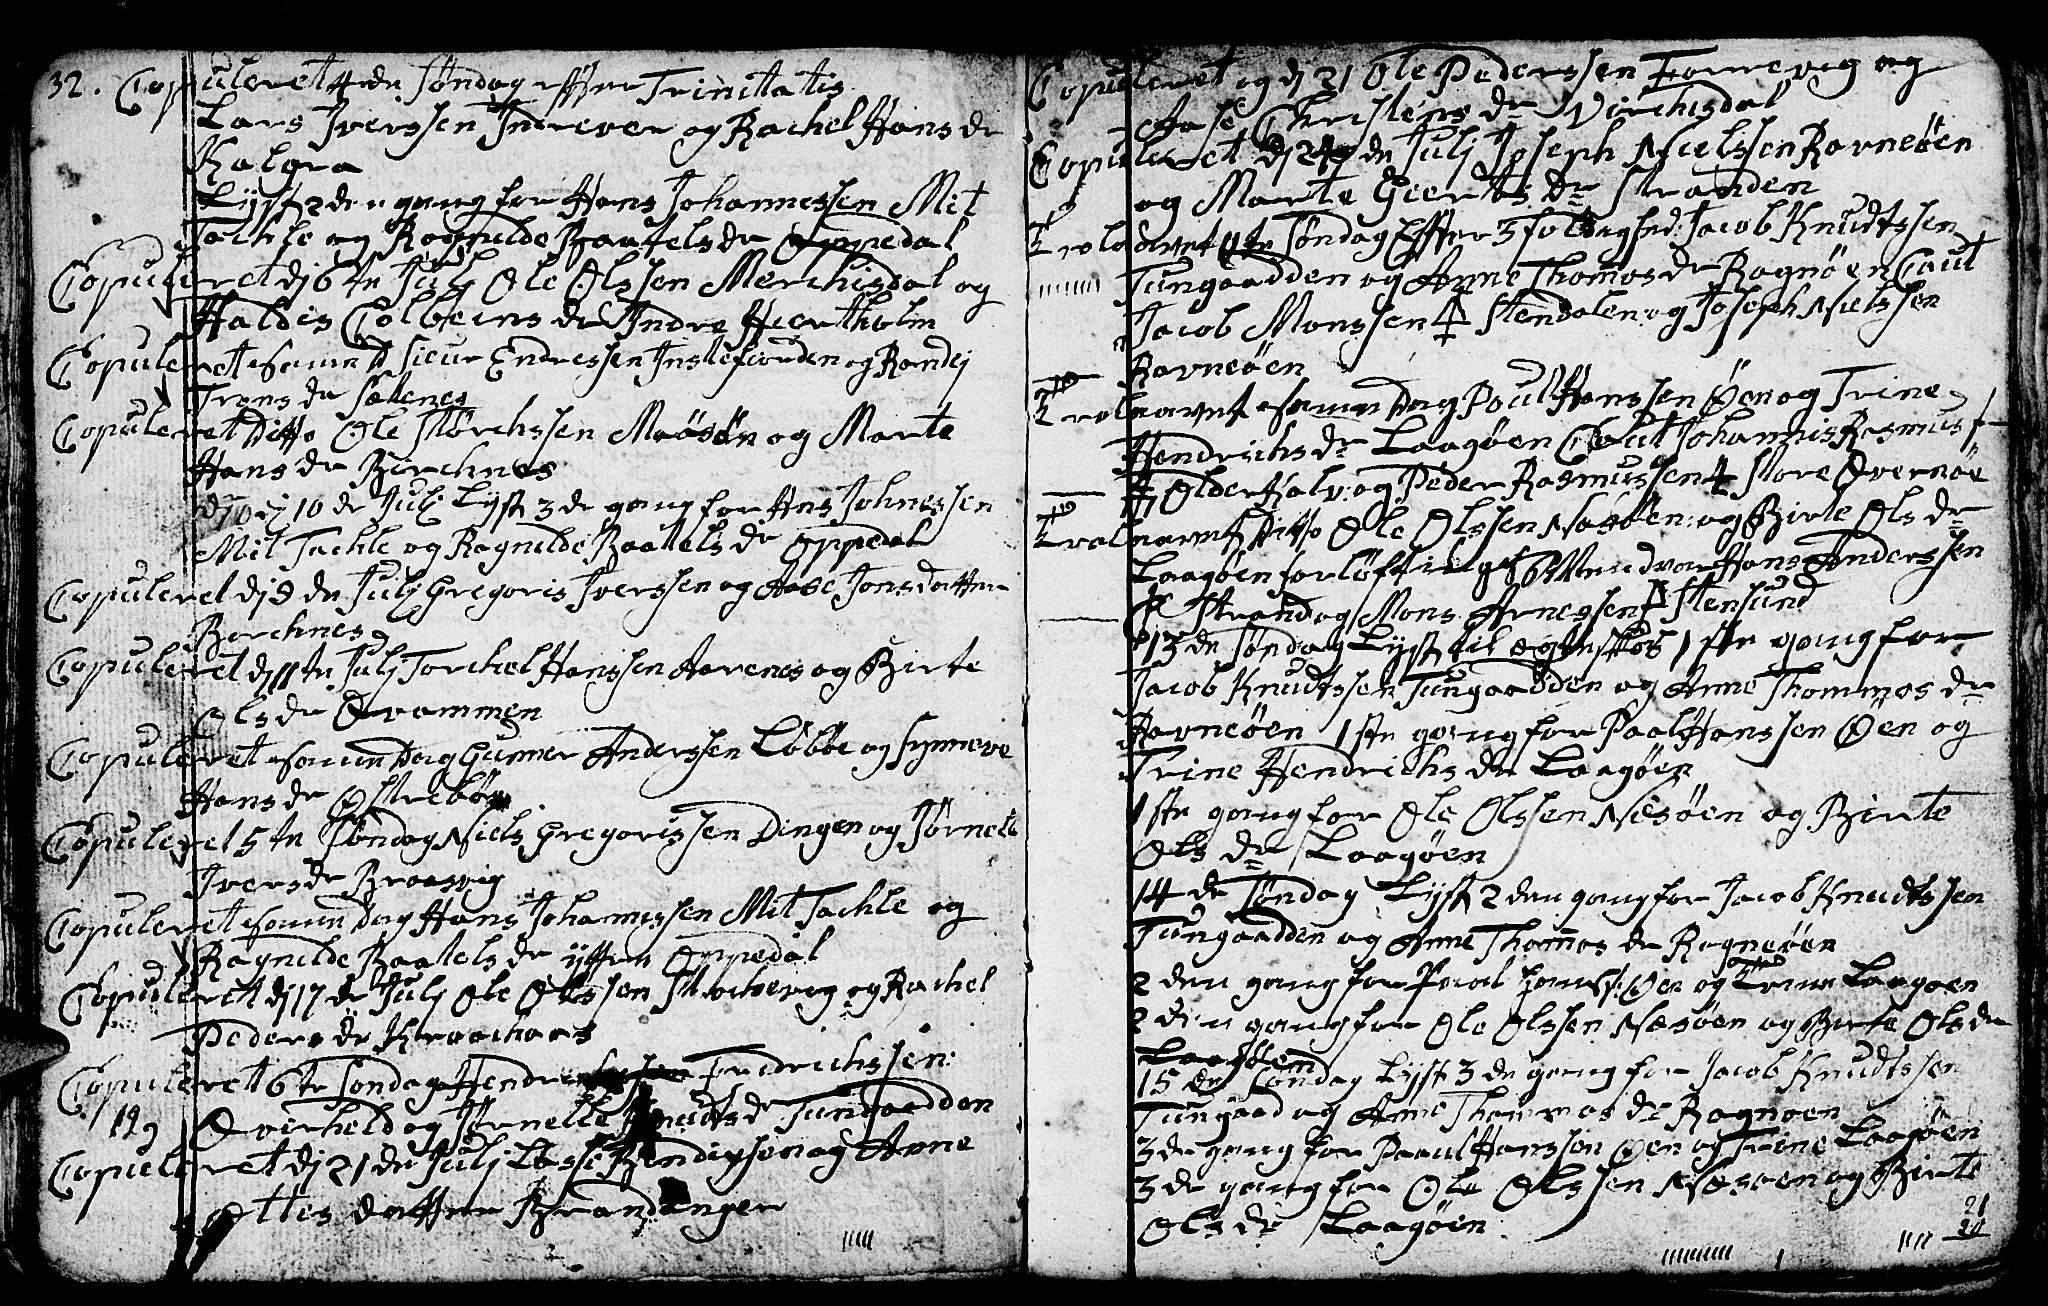 32. Copuleret 4de Søndag effter Trinitatis
Lars Iverssen Indrevær og Rachel Hans dr
Kalgra
Lyst 2den gang for Hans Johannessen Mit
Tachle og Ragnilde Baatels dr Oppedal
Copuleret dj 6te Julj Ole Olssen Merchisdal og
Haldis Colbeins dr Indre Hiertholm
Copuleret samme D Siur Endressen Instefiorden og Randij
Trons dr Sælenes
Copuleret Ditto Ole Størchssen Mosøn og Marte
Hans dr Birchnes
dj 10de Julj Lyst 3de gang for Hns Johnessen
Mit Tachle og Ragnilde Baatels dr Oppedal
Copuleret dj 9de Julj Gregoris Iverssen og Aase Jons datter
Borchnes
Copuleret dj 11te Julj Torchel Hanssen Aarenes og Birte
Ols dr Drammen
Copuleret samme Dag Gunner Anderssen Løbøe og Synneve
Hans dr Østrebø
Copuleret 5te Søndag Niels Gregorissen Dingen og Jørnele
Ivers dr Braasvig
Copuleret samme Dag Hans Johannissen Mit Tachle og
Ragnilde Baatels dr yttre Oppedal
Copuleret dj 17de Julj Ole Olssen Stochevog og Rachel
Peders dr Kraachaes
Copuleret 6te Søndag Hendrich Fridrichssen:
Overheld og Jørnelle Knudts dr Tungaadden
19
Copuleret dj 21de Julj Lasse Bendixsen og Anne
Ottes datter Brandanger
Copuleret og dj 21 Ole Pederssen Torrevig og
Aase Christens dr Virchisdal
Copuleret dj 24de Julj Joseph Nielssen Ravneøen
og Marte Gierts dr Stranden
Trolovet 11te Søndag Effter 3foldighed: Jacob Knudtssen
Tungaadden og Anne Thomas dr Ragnøen Caut
Jacob Monssen Stendalen og Joseph Nielssen
Ravneøen
Trolovet samme Dag Poul Hanssen Øen og Trine
Hendrichs dr Laagøen Caut Johannis Rasmuss
Holder Kalv: og Peder Rasmussen Store Overnøe
Trolovet Ditto Ole Olssen Næsøen: og Birte Ols dr
Laagøen forløfftings Mænd var Hans Anderssen
Strand og Mons Arnessen Stensund
13de Søndag Lyst til ægteskab 1ste gang for
Jacob Knudtssen Tungaadden og Anne Thommas dr
Ravneøen 1ste gang for Paal Hanssen Øen og
Trine Hendrichs dr Laagøen
1ste gang for Ole Olssen Næsøen og Birte
Ols dr Laagøen
14de Søndag Lyst 2den gang for Jacob Knudtssen
Tungaadden og Anne Thomas dr Ragneøen
2den gang for Paul Hanss: Øen og Trine Laagøen
2den gang for Ole Olssen Næsøen og Birte Ols dr
Laagøen
15de Søndag Lyst 3de gang for Jacob Knudtssen
Tungaad og Anne Thommas dr Ragnøen
3de gang for Paaul Hanssen Øen og Trine Laagøen
3de gang for Ole Olssen Næsøen og Birte
Ols dr Laagøen
21